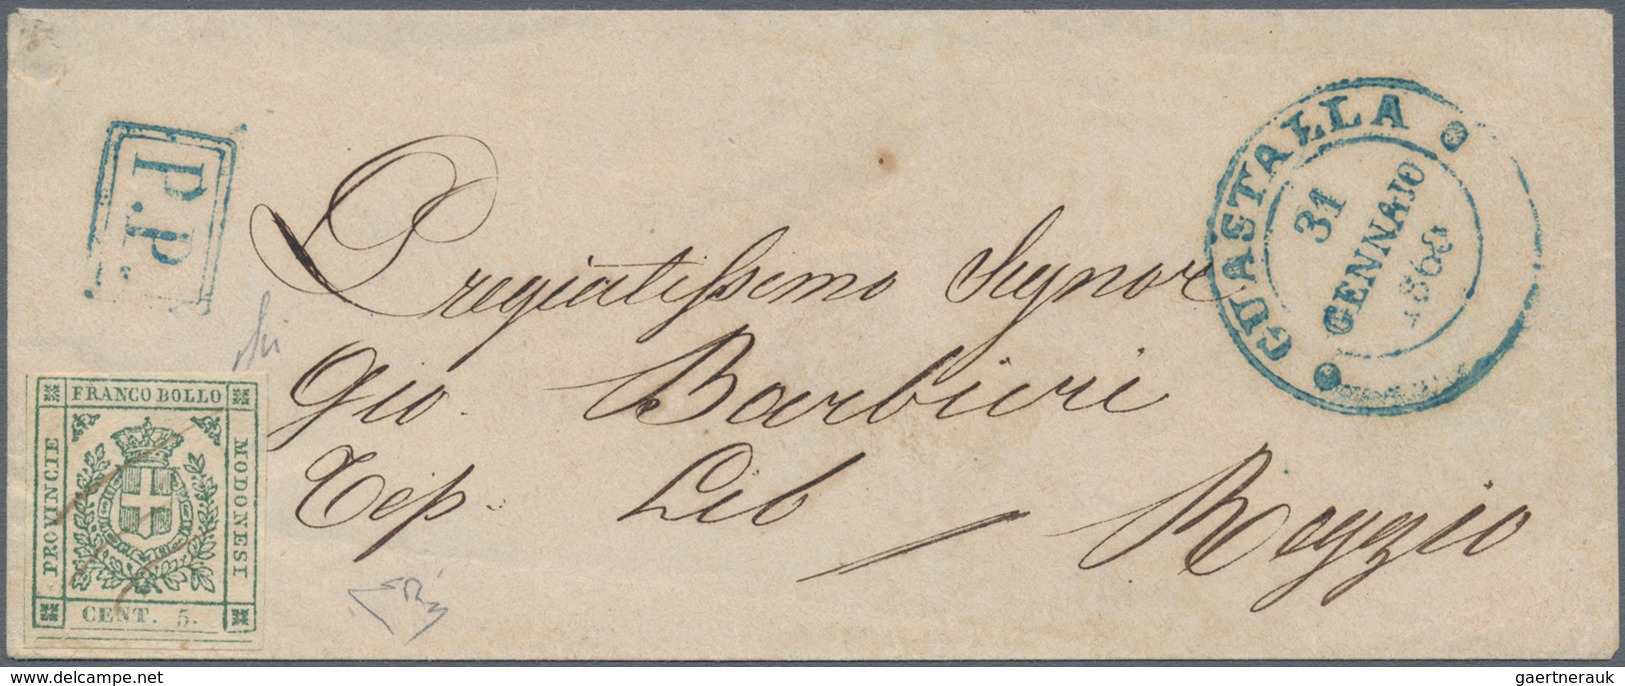 P.P.
GUASTALLA
31
GENNAJO
1868
Pregiatissimo Signor
Gio. Barbieri
Tip. Lib
Reggio
FRANCO BOLLO
PROVINCIE
MODONESI
CENT. 5.
delcampe.net
gaertnerauk